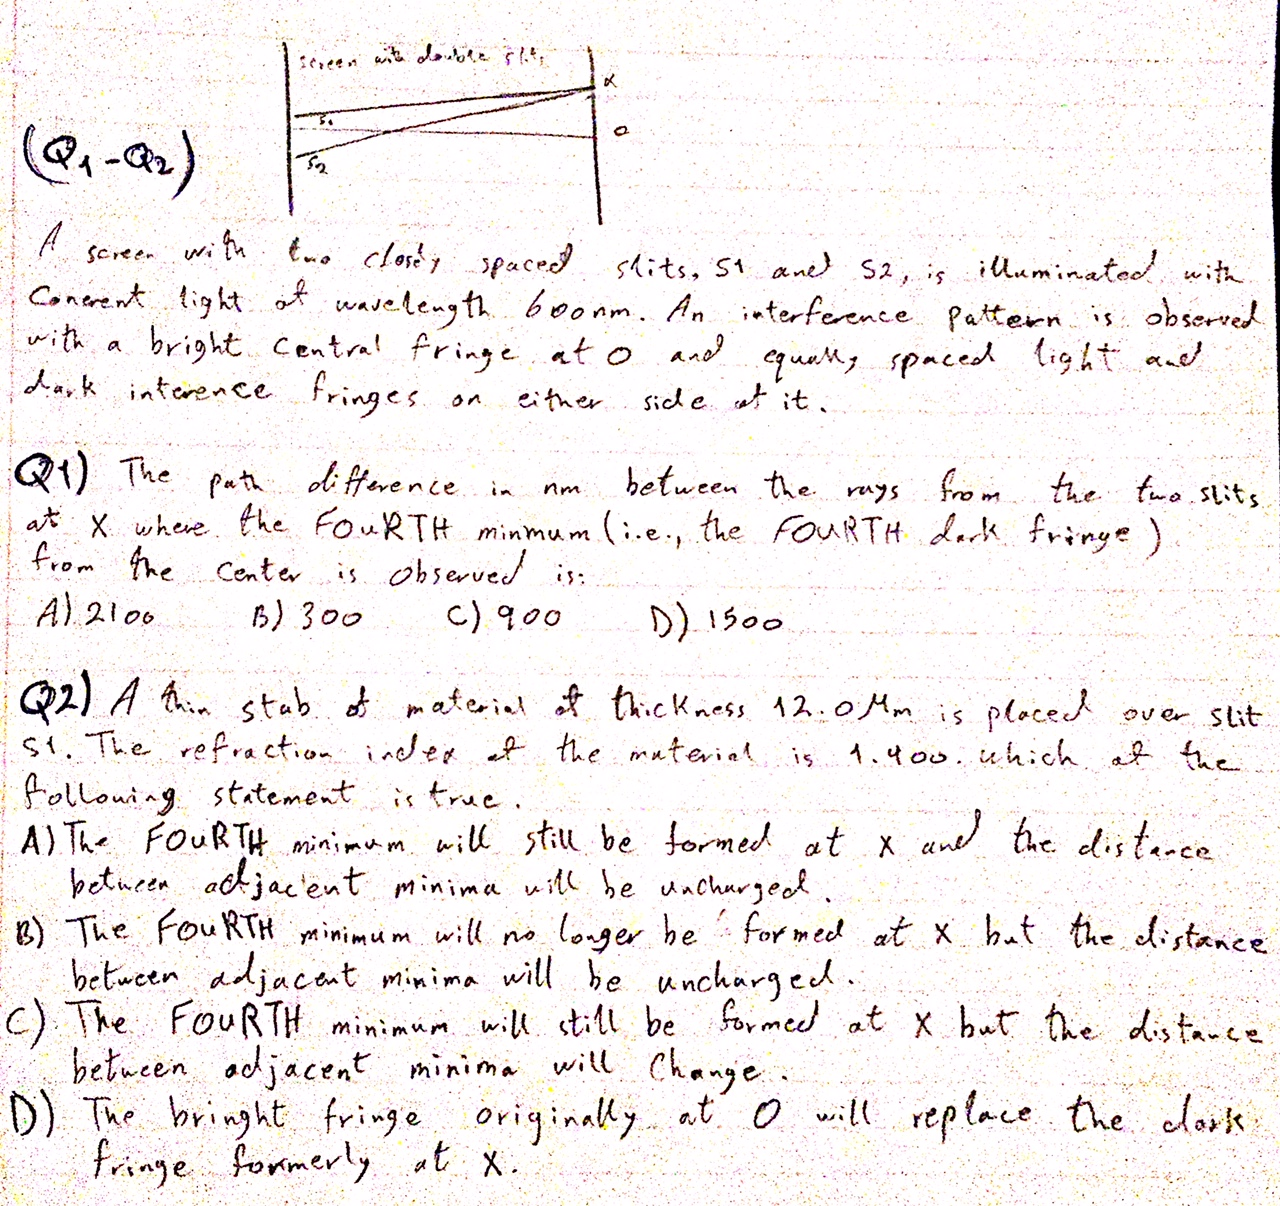 screen with double slits
X
S1
O
S2
(Q1-Q2)
A screen with two closely spaced slits, S1 and S2, is illuminated with
Conerent light of wavelength 600nm. An interference pattern is observed
with a bright central fringe at O and equally spaced light and
dark interence fringes on either side of it.
Q1) The path difference in nm between the rays from the two slits
at X where the FOURTH minmum (i.e., the FOURTH dark fringe)
from the center is observed is:
A) 2100 B) 300 C) 900 D) 1500
Q2) A thin stab of material of thickness 12.0 Mm is placed over slit
S1. The refraction index of the material is 1.400. which of the
following statement is true.
A) The FOURTH minimum will still be formed at X and the distance
between adjacent minima will be uncharged.
B) The FOURTH minimum will no longer be formed at X but the distance
between adjacent minima will be uncharged.
C) The FOURTH minimum will still be formed at X but the distance
between adjacent minima will Change.
D) The bringht fringe originally at O will replace the dark
fringe formerly at X.